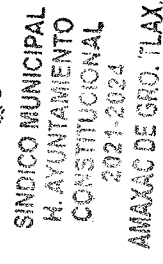 SINDICO MUNICIPAL
H. AYUNTAMIENTO
CONSTITUCIONAL
2021-2024
AMAXAC DE GRO. TLAX.